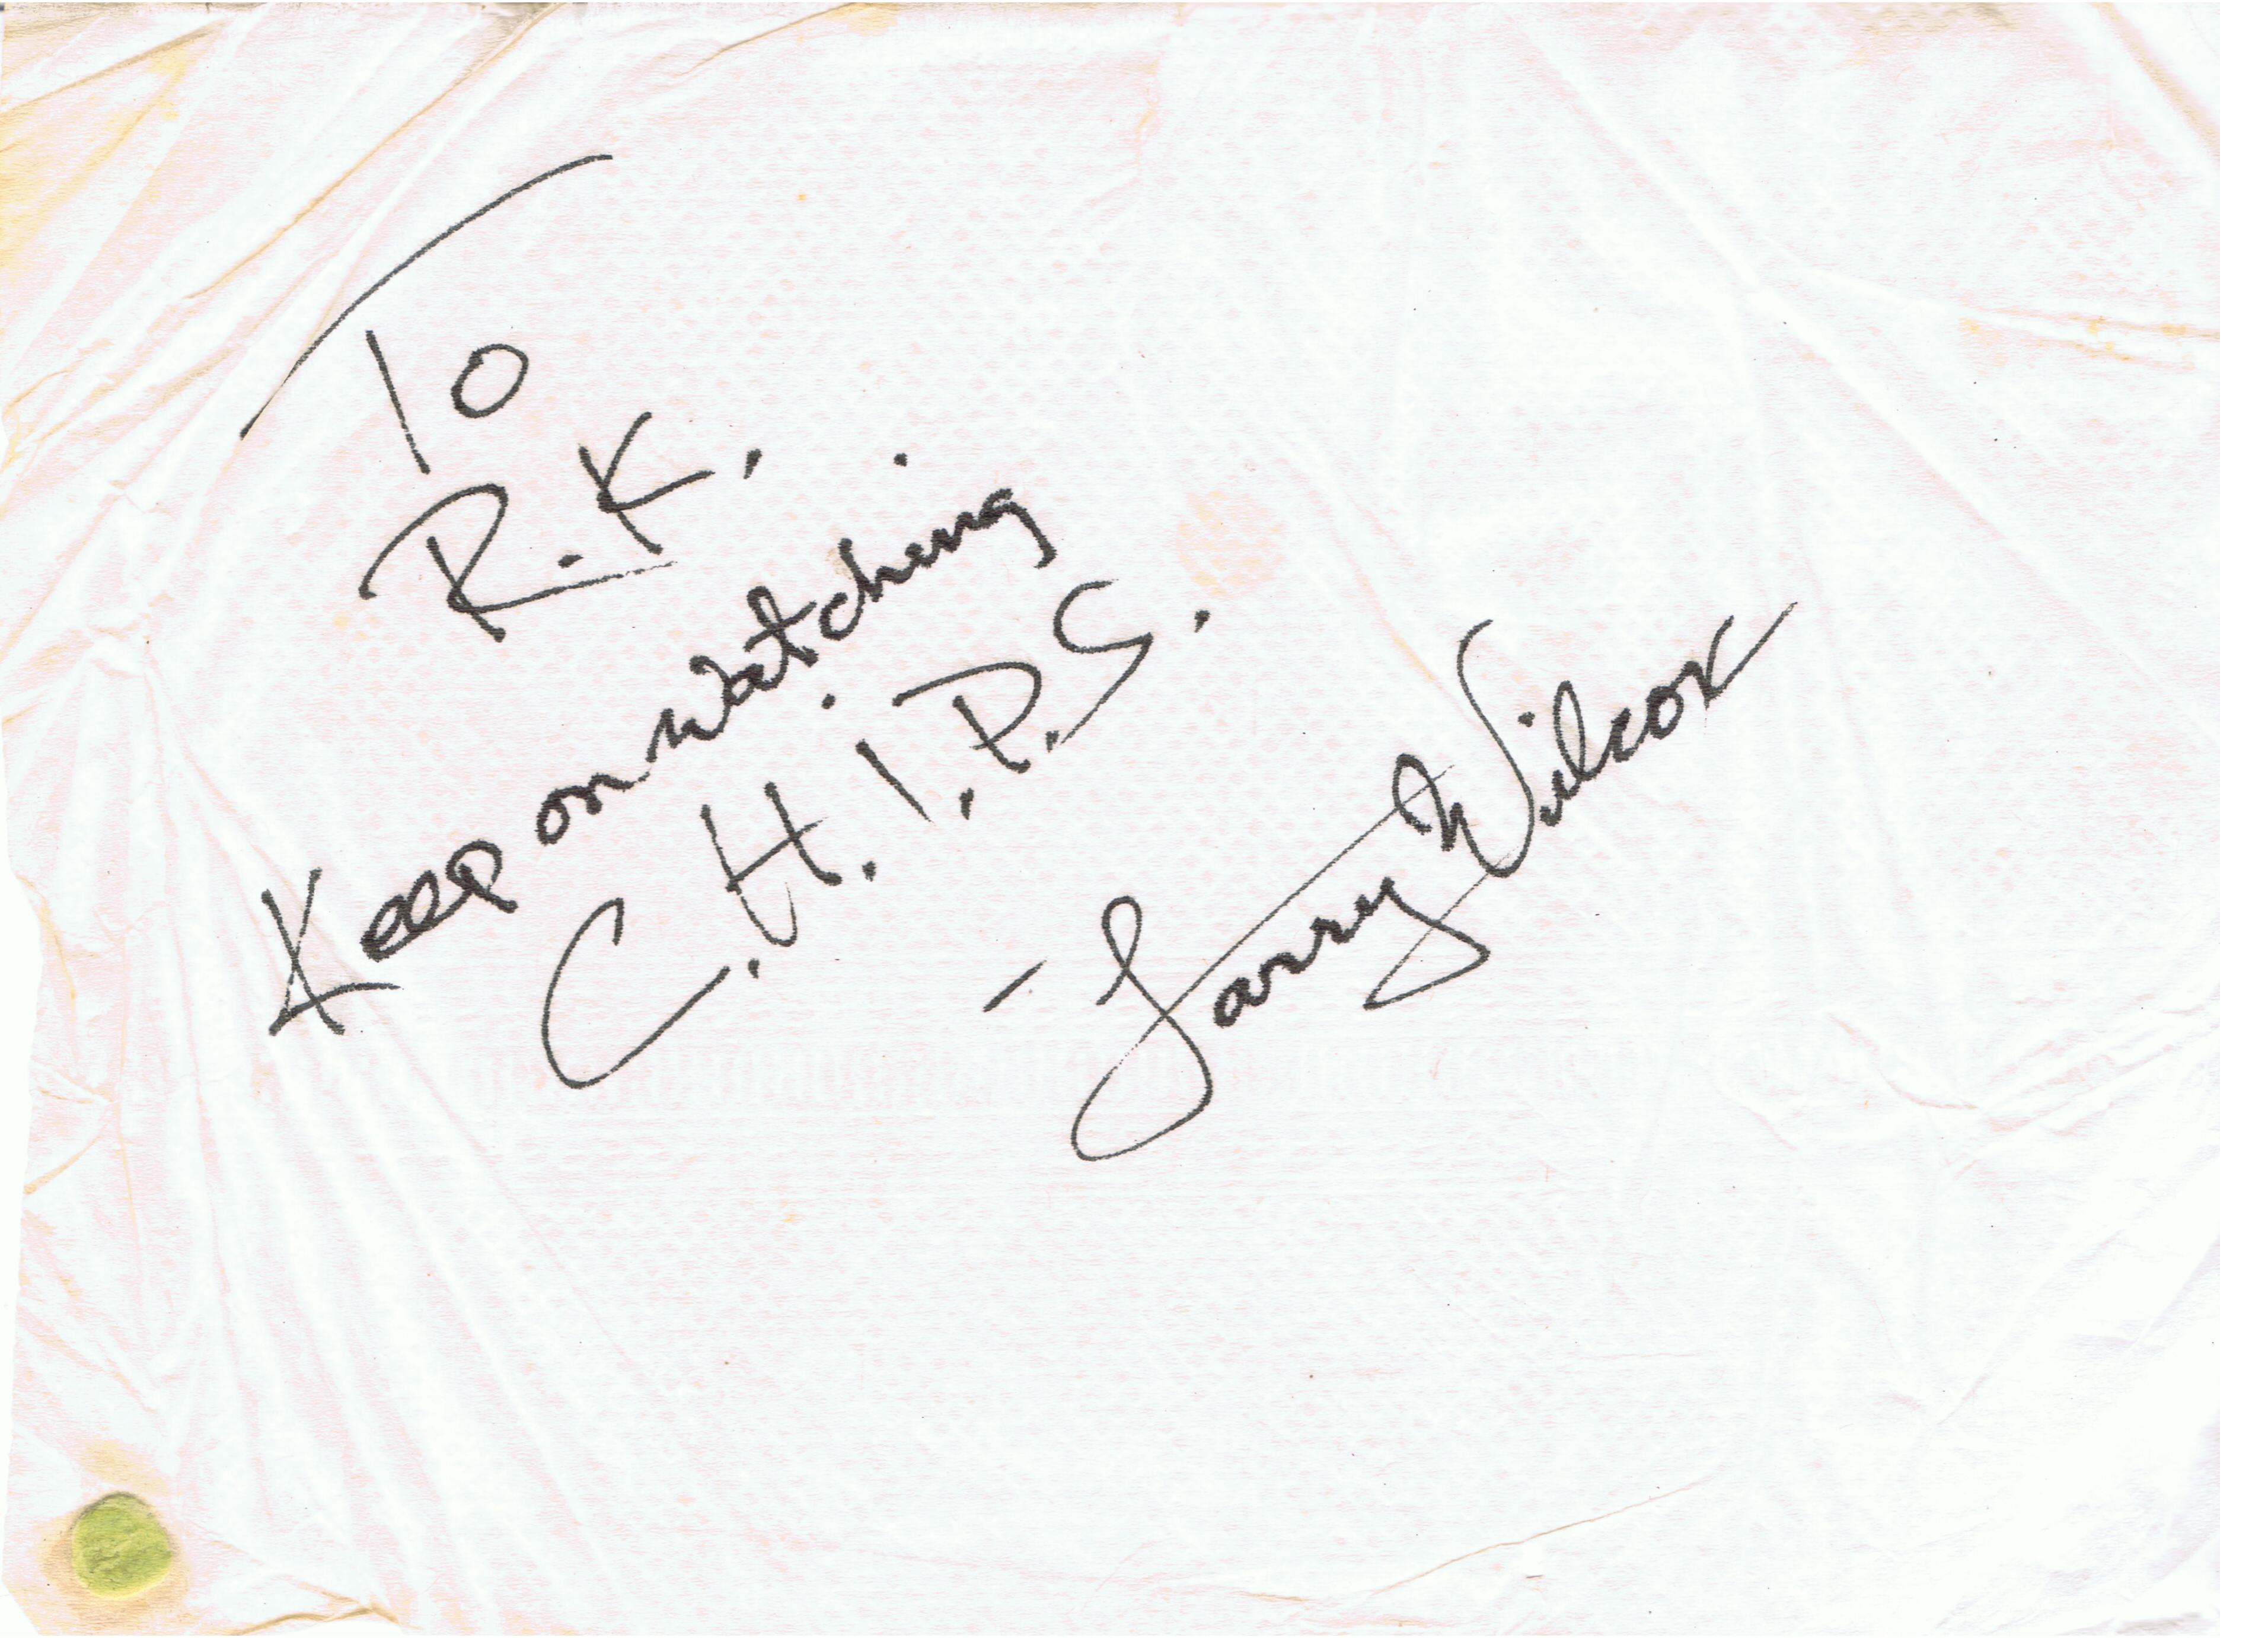 To
R.K.
Keep on watching
C.H.I.P.S.
- Larry Wilcox